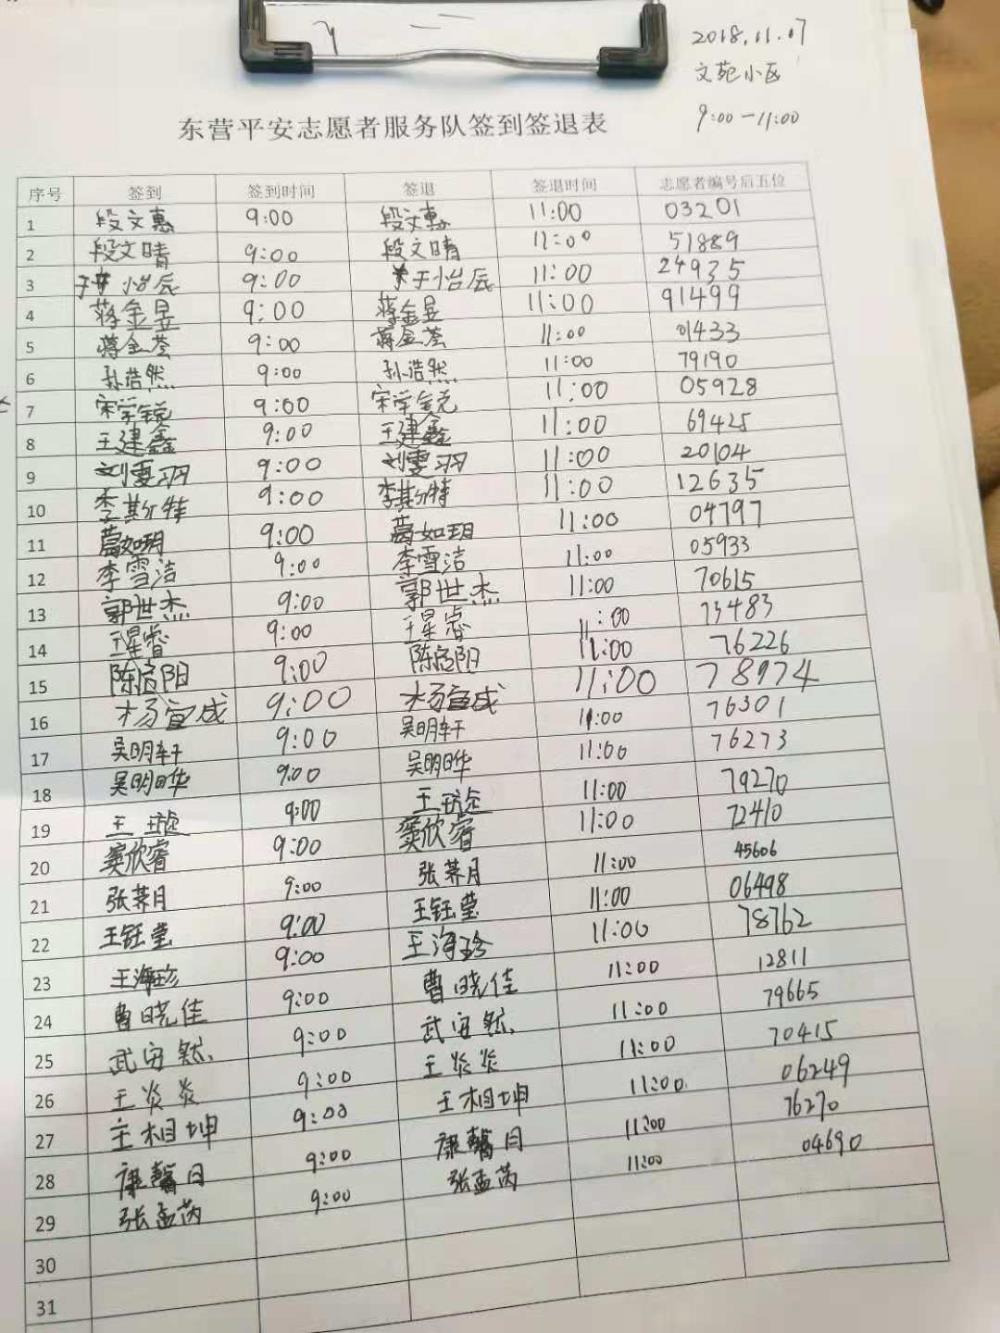 2018.11.07
文苑小区
9:00-11:00
东营平安志愿者服务队签到签退表
序号 签到 签到时间 签退 签退时间 志愿者编号后五位
1 段文惠 9:00 段文惠 11:00 03201
2 段文晴 9:00 段文晴 11:00 51889
3 于怡辰 9:00 于怡辰 11:00 24935
4 蒋金昱 9:00 蒋金昱 11:00 91499
5 蒋金荟 9:00 蒋金荟 11:00 01433
6 孙浩然 9:00 孙浩然 11:00 79190
7 宋学锐 9:00 宋学锐 11:00 05928
8 王建鑫 9:00 王建鑫 11:00 69425
9 刘雯羽 9:00 刘雯羽 11:00 20104
10 李斯特 9:00 李斯特 11:00 12635
11 葛如玥 9:00 葛如玥 11:00 04797
12 李雪洁 9:00 李雪洁 11:00 05933
13 郭世杰 9:00 郭世杰 11:00 70615
14 王星睿 9:00 王星睿 11:00 73483
15 陈启阳 9:00 陈启阳 11:00 76226
16 杨宜成 9:00 杨宜成 11:00 78974
17 吴明轩 9:00 吴明轩 11:00 76301
18 吴明晔 9:00 吴明晔 11:00 76273
19 王 9:00 王 11:00 79270
20 窦欣睿 9:00 窦欣睿 11:00 72410
21 张荞月 9:00 张荞月 11:00 45606
22 王钰莹 9:00 王钰莹 11:00 06498
23 王海珍 9:00 王海珍 11:00 78762
24 曹晓佳 9:00 曹晓佳 11:00 12811
25 武安然 9:00 武安然 11:00 79665
26 王炎炎 9:00 王炎炎 11:00 70415
27 王相坤 9:00 王相坤 11:00 06249
28 康馨月 9:00 康馨月 11:00 76270
29 张孟芮 9:00 张孟芮 11:00 04690
30
31